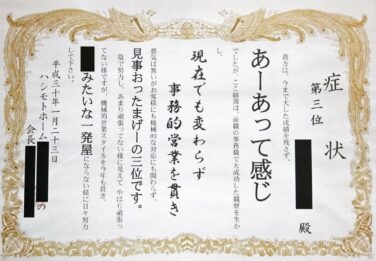 症状
第三位
殿
貴方は、今まで大した成績を残さず、
あーあって感じ
でしたが、ここ最近は、前職の事務職で大成功した職歴を生かし、
現在でも変わらず
事務的営業を貫き
悪気は無いがお客様にも機械的な対応にも関わらず、
見事おったまげーの三位です。
陰で努力し、あまり頑張ってない様に見えて やはり頑張って
ない様ですが、機械的営業スタイルを今年も貫き、
みたいな一発屋にならない様に日々努力
して下さい。
平成三十年一月二十三日
ハシモトホーム
会長
の